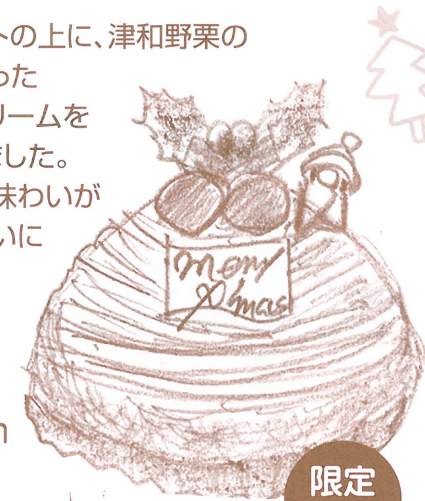 トの上に、津和野栗の
った
リームを
ました。
味わいが
いに
Merry
X'mas
限定